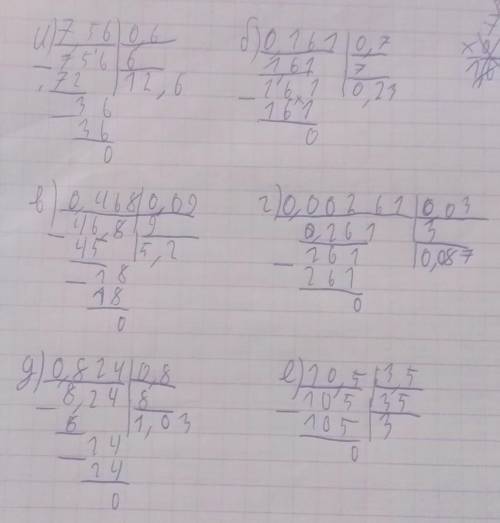 а) 7,56 | 0,6
- 7 5,6 | 6
72 | 12,6
- 36
36
0
б) 0,161 | 0,7
161 | 7
- 1,61 | 0,23
161
0
в) 0,468 | 0,09
- 46,8 | 9
45 | 5,2
- 18
18
0
г) 0,00261 | 0,03
0,261 | 3
- 261 | 0,087
261
0
д) 0,824 | 0,8
- 8,24 | 8
8 | 1,03
- 24
24
0
е) 10,5 | 3,5
- 105 | 35
105 | 3
0